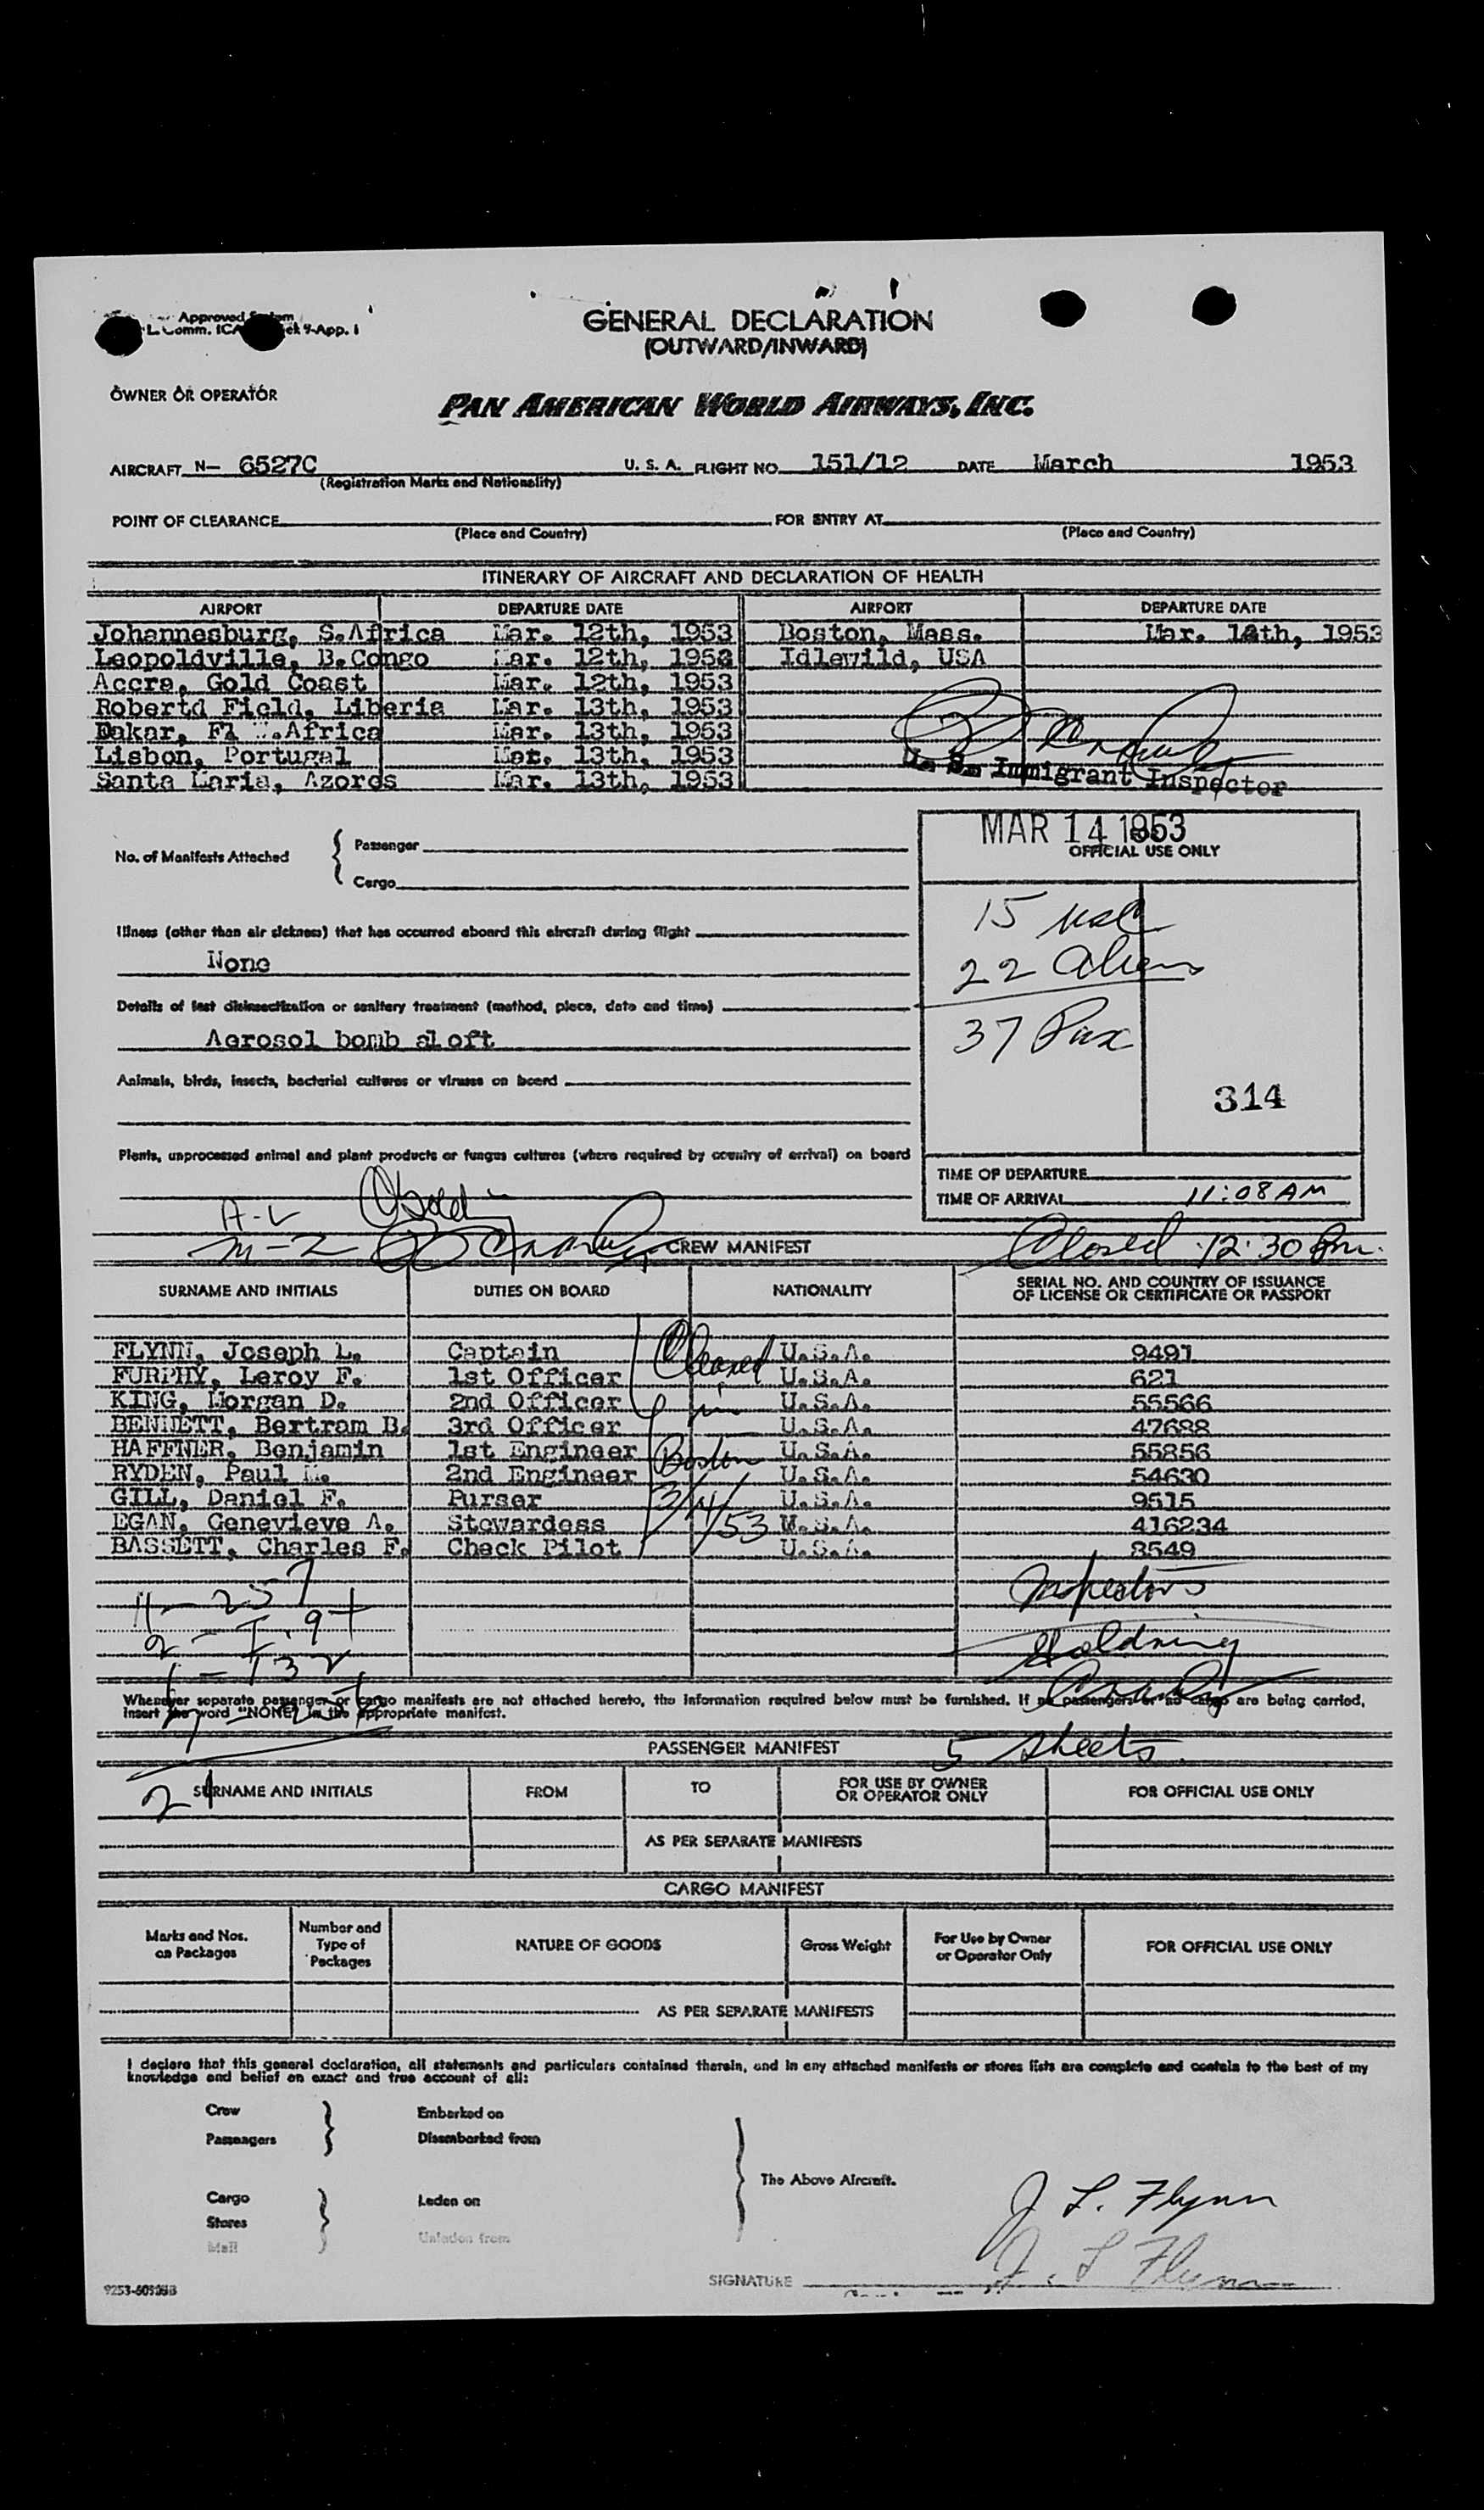 Approved
L. Comm. ICA ek 9-App. 1
GENERAL DECLARATION
(OUTWARD/INWARD)
OWNER OR OPERATOR
PAN AMERICAN WORLD AIRWAYS, INC.
AIRCRAFT N- 6527C U. S. A. FLIGHT NO. 151/12 DATE March 1953
(Registration Marks and Nationality)
POINT OF CLEARANCE FOR ENTRY AT
(Place and Country) (Place and Country)
ITINERARY OF AIRCRAFT AND DECLARATION OF HEALTH
AIRPORT DEPARTURE DATE AIRPORT DEPARTURE DATE
Johannesburg, S.Africa Mar. 12th, 1953 Boston, Mass. Mar. 14th, 1953
Leopoldville, B.Congo Mar. 12th, 1953 Idlewild, USA
Accra, Gold Coast Mar. 12th, 1953
Robertd Field, Liberia Mar. 13th, 1953
Dakar, Fr W.Africa Mar. 13th, 1953
Lisbon, Portugal Mar. 13th, 1953
Santa Maria, Azores Mar. 13th, 1953
U. S. Immigrant Inspector
MAR 14 1953
OFFICIAL USE ONLY
No. of Manifests Attached { Passenger
Cargo
15 usc
22 Aliens
37 Pax
314
Illness (other than air sickness) that has occurred aboard this aircraft during flight
None
Details of last disinsectization or sanitary treatment (method, place, date and time)
Aerosol bomb aloft
Animals, birds, insects, bacterial cultures or viruses on board
Plants, unprocessed animal and plant products or fungus cultures (where required by country of arrival) on board
TIME OF DEPARTURE
TIME OF ARRIVAL 11:08 AM
A-2
M-2
CREW MANIFEST
Closed 12:30 Pm.
SURNAME AND INITIALS DUTIES ON BOARD NATIONALITY SERIAL NO. AND COUNTRY OF ISSUANCE
OF LICENSE OR CERTIFICATE OR PASSPORT
FLYNN, Joseph L. Captain U.S.A. 9491
FURPHY, Leroy F. 1st Officer U.S.A. 621
KING, Morgan D. 2nd Officer U.S.A. 55566
BENNETT, Bertram B. 3rd Officer U.S.A. 47688
HAFFNER, Benjamin 1st Engineer U.S.A. 55856
RYDEN, Paul M. 2nd Engineer U.S.A. 54630
GILL, Daniel F. Purser U.S.A. 9515
EGAN, Genevieve A. Stewardess U.S.A. 416234
BASSETT, Charles F. Check Pilot U.S.A. 8549
Cleared
in
Boston
3/14/53
Inspectors
Goldring
11 - 257
21
Whenever separate passenger or cargo manifests are not attached hereto, the information required below must be furnished. If no passengers or no cargo are being carried,
insert the word "NONE" in the appropriate manifest.
PASSENGER MANIFEST 5 sheets.
SURNAME AND INITIALS FROM TO FOR USE BY OWNER
OR OPERATOR ONLY FOR OFFICIAL USE ONLY
AS PER SEPARATE MANIFESTS
CARGO MANIFEST
Marks and Nos.
on Packages Number and
Type of
Packages NATURE OF GOODS Gross Weight For Use by Owner
or Operator Only FOR OFFICIAL USE ONLY
AS PER SEPARATE MANIFESTS
I declare that this general declaration, all statements and particulars contained therein, and in any attached manifests or stores lists are complete and contain to the best of my
knowledge and belief an exact and true account of all:
Crew Embarked on
Passengers Disembarked from
The Above Aircraft.
Cargo Laden on
Stores
Mail Unladen from
J. L. Flynn
SIGNATURE J. L Flynn